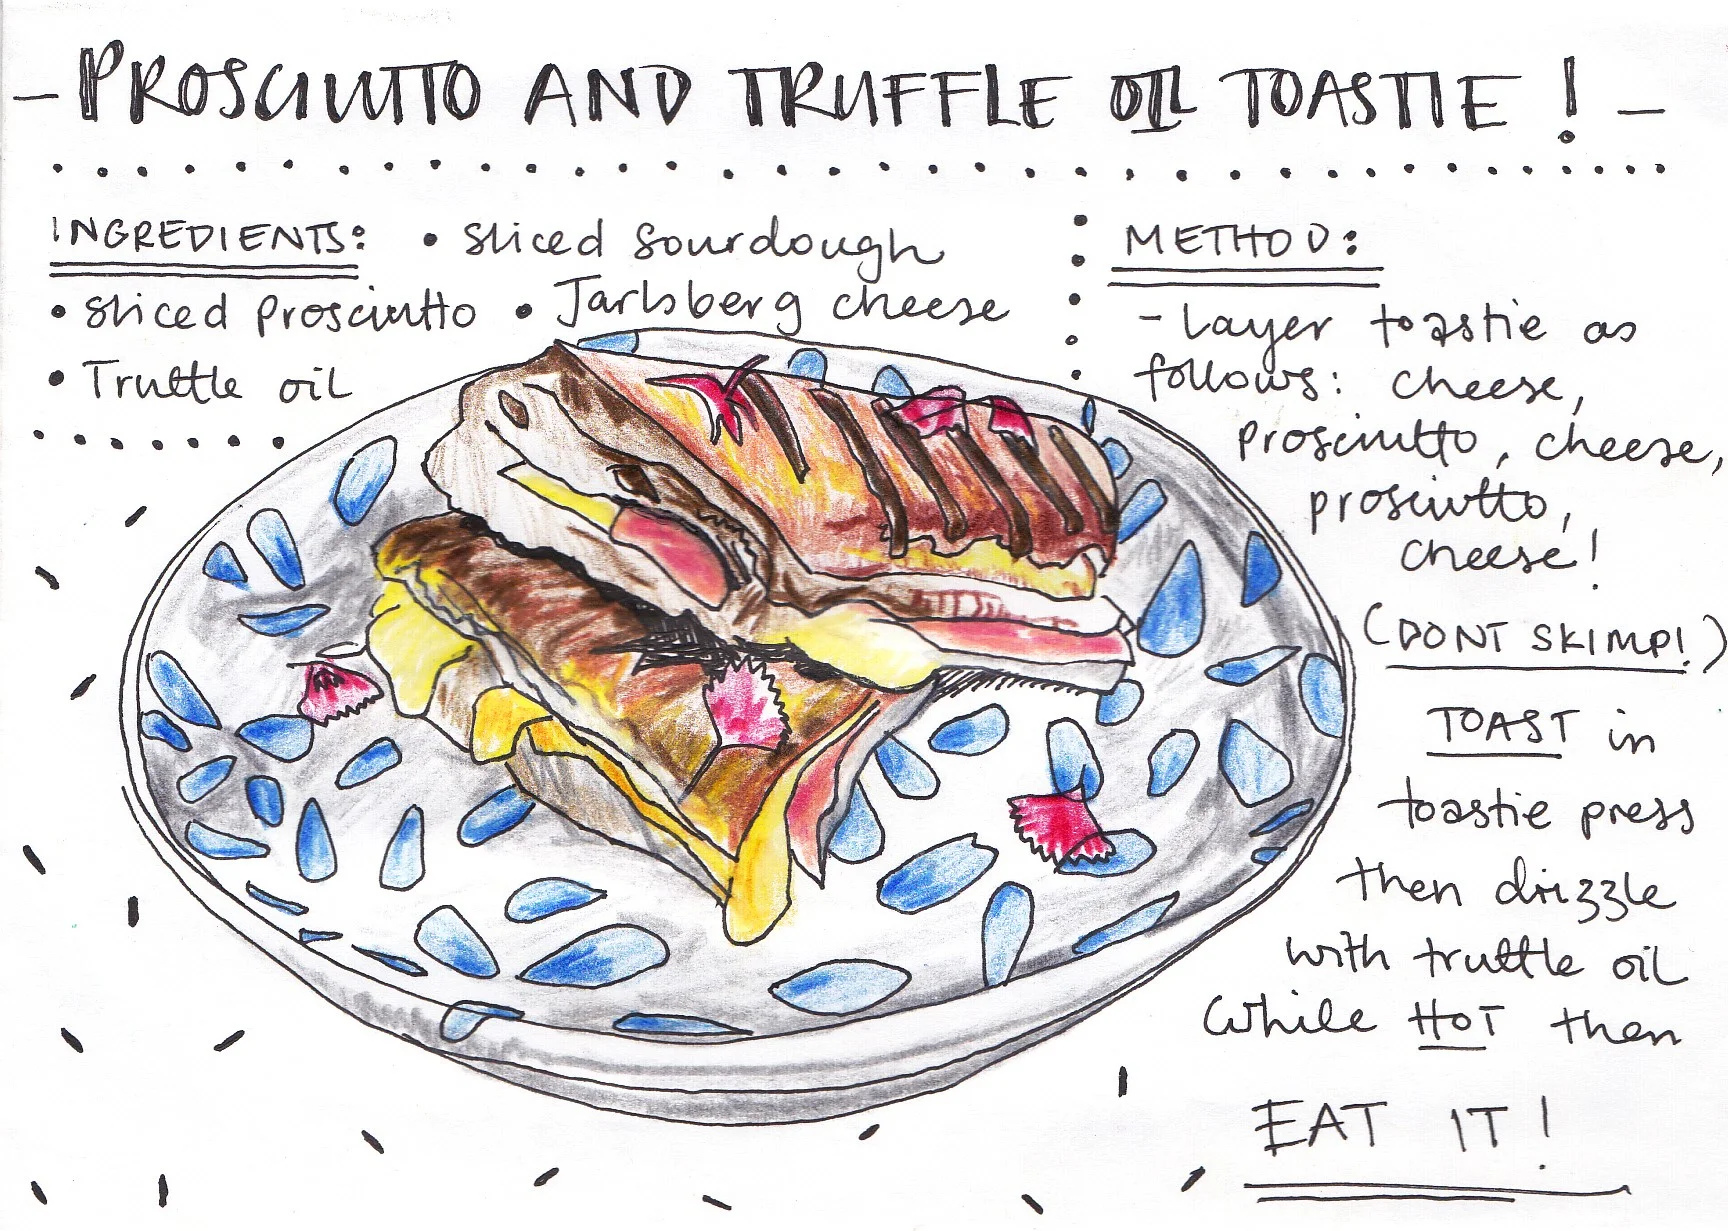 - PROSCIUTTO AND TRUFFLE OIL TOASTIE! -
INGREDIENTS: • sliced sourdough
• sliced prosciutto • Jarlsberg cheese
• Truffle oil
METHOD:
- Layer toastie as
follows: cheese,
prosciutto, cheese,
prosciutto,
cheese!
(DONT SKIMP!)
TOAST in
toastie press
then drizzle
with truffle oil
while HOT then
EAT IT!